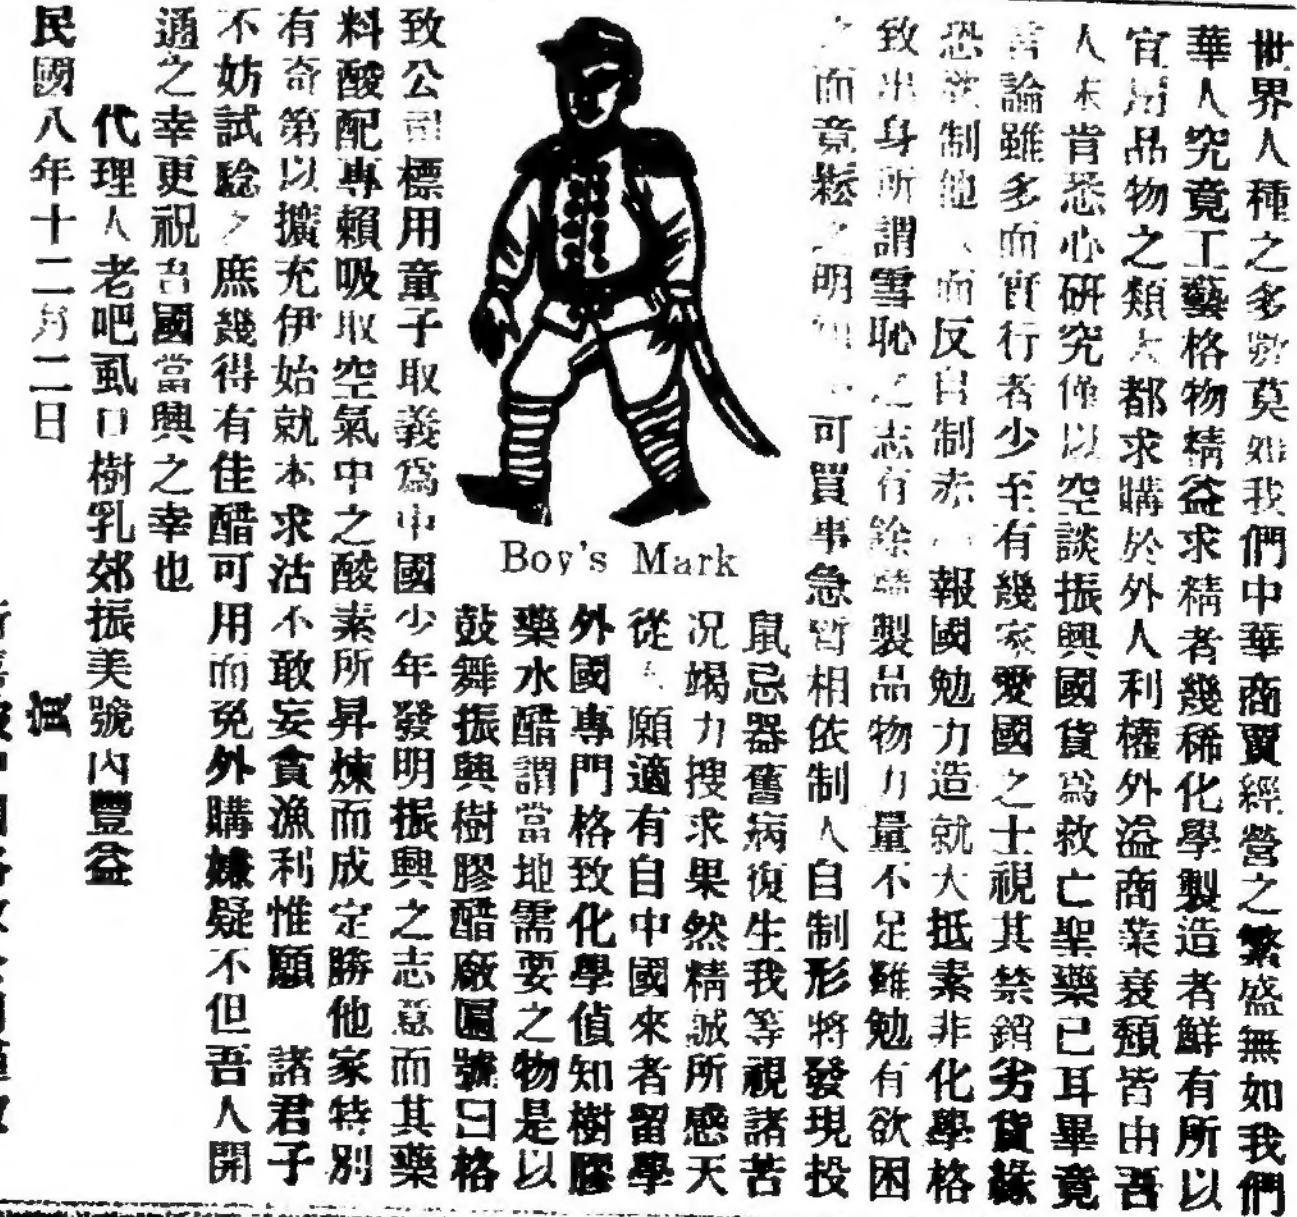 世界人種之多數莫如我們中華商賈經營之繁盛無如我們
華人究竟工藝格物精益求精者幾稀化學製造者鮮有所以
宜用品物之類大都求購於外人利權外溢商業衰頹皆由吾
人未肯悉心研究僅以空談振興國貨為救亡聖藥已耳畢竟
言論雖多而實行者少至有幾家愛國之士視其禁銷劣貨緣
恐 制他人而反自制赤心報國勉力造就大抵素非化學格
致出身所謂雪恥之志有餘 製品物力量不足雖勉有欲困
之而竟鬆之明知 可買事急暫相依制人自制形將發現投
鼠忌器舊病復生我等視諸苦
况竭力搜求果然精誠所感天
從人願適有自中國來者留學
外國專門格致化學偵知樹膠
藥水醋謂當地需要之物是以
鼓舞振興樹膠醋廠匾號曰格
Boy's Mark
致公司標用童子取義為中國少年發明振興之志意而其藥
料酸配專賴吸取空氣中之酸素所昇煉而成定勝他家特別
有奇第以擴充伊始就本求沽不敢妄貪漁利惟願 諸君子
不妨試驗之庶幾得有佳醋可用而免外購嫌疑不但吾人開
通之幸更祝吾國當興之幸也
代理人老吧虱口樹乳郊振美號內豐益
民國八年十二月二日